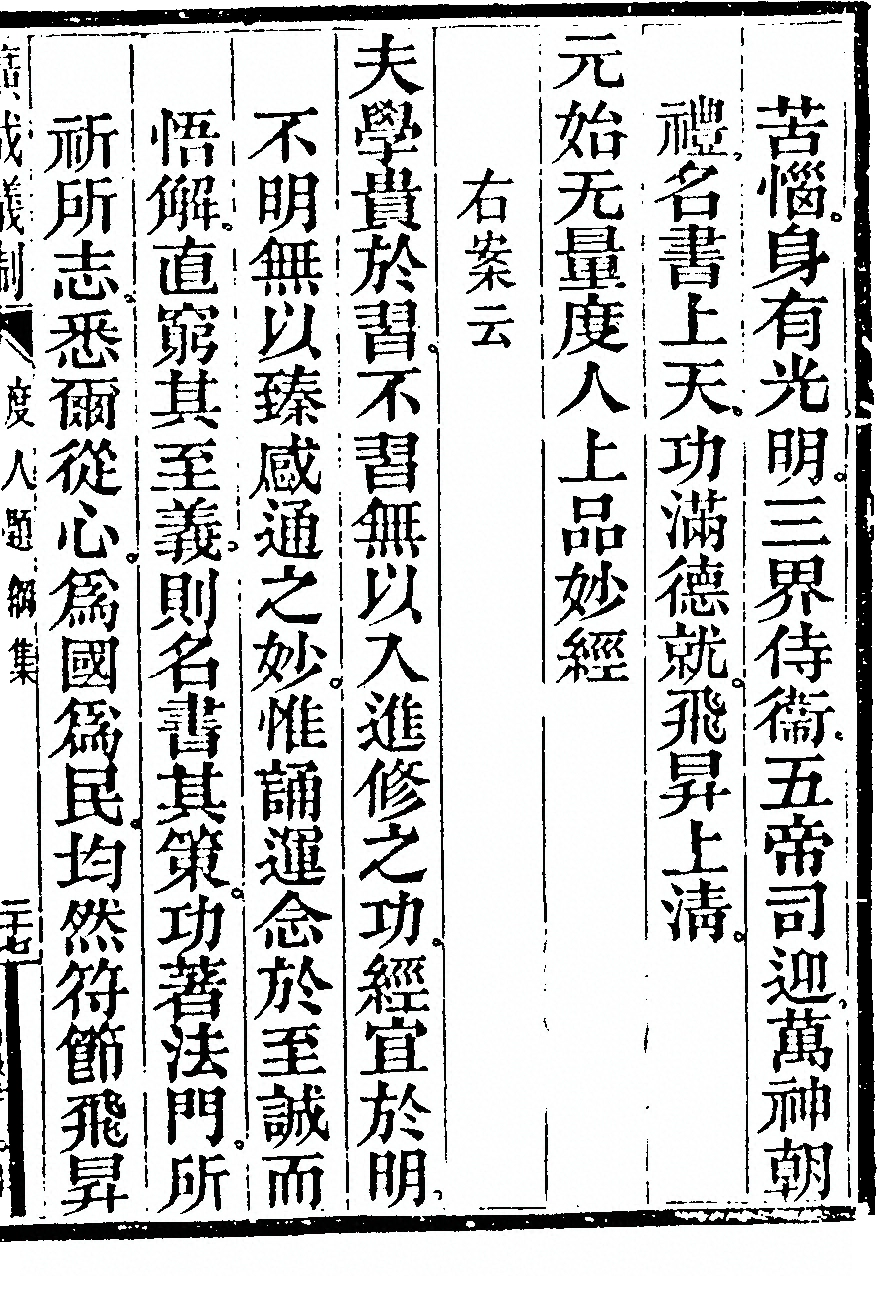 苦惱。身有光明。三界侍衞。五帝司迎。萬神朝
禮。名書上天。功滿德就。飛昇上清。
元始无量度人上品妙經
右案云
夫學貴於習。不習無以入進修之功。經宜於明。
不明無以臻感通之妙。惟誦運念於至誠而
悟解。直窮其至義。則名書其策。功著法門。所
祈所志。悉爾從心。爲國爲民。均然符節飛昇
廣成儀制 度人題綱集 二十七